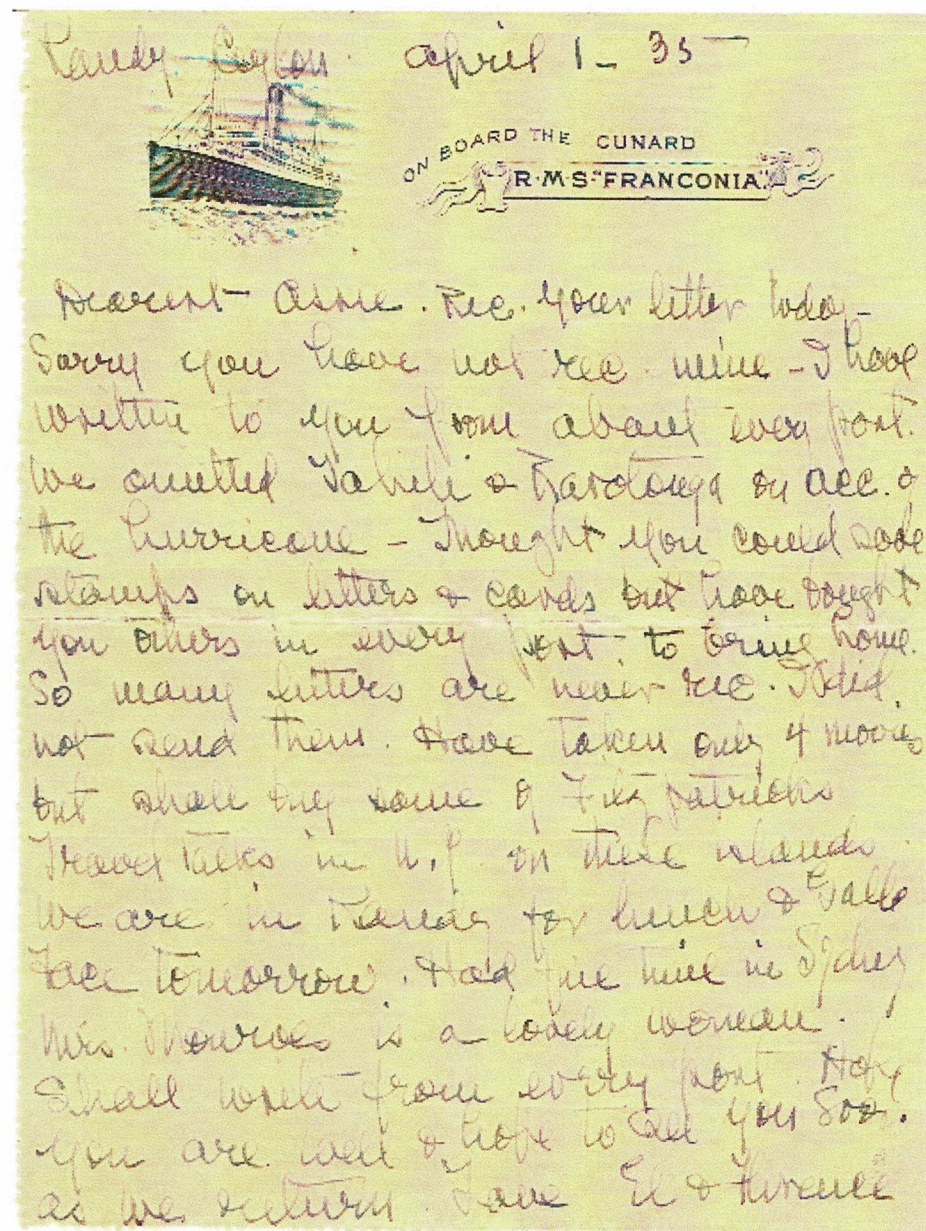 Kandy Ceylon. April 1 - 35
ON BOARD THE CUNARD
R.M.S. "FRANCONIA"
Dearest . Rec. your letter today -
Sorry you have not rec. mine - I have
written to you from about every port.
We omitted Tahiti & Rarotonga on acc. of
the hurricane - Thought you could save
stamps on letters & cards but have bought
you others in every port to bring home.
So many letters are never rec. I did
not send them. Have taken only 4 movies
but shall buy some of Fitzpatricks
Travel Talks in N.Y. on these islands.
We are in Kandy for lunch & Galle
Face tomorrow. Had fine time in Sydney
Mrs. is a lovely woman.
Shall write from every port. Hope
you are well & hope to see you soon.
as we return. Love El & Florence